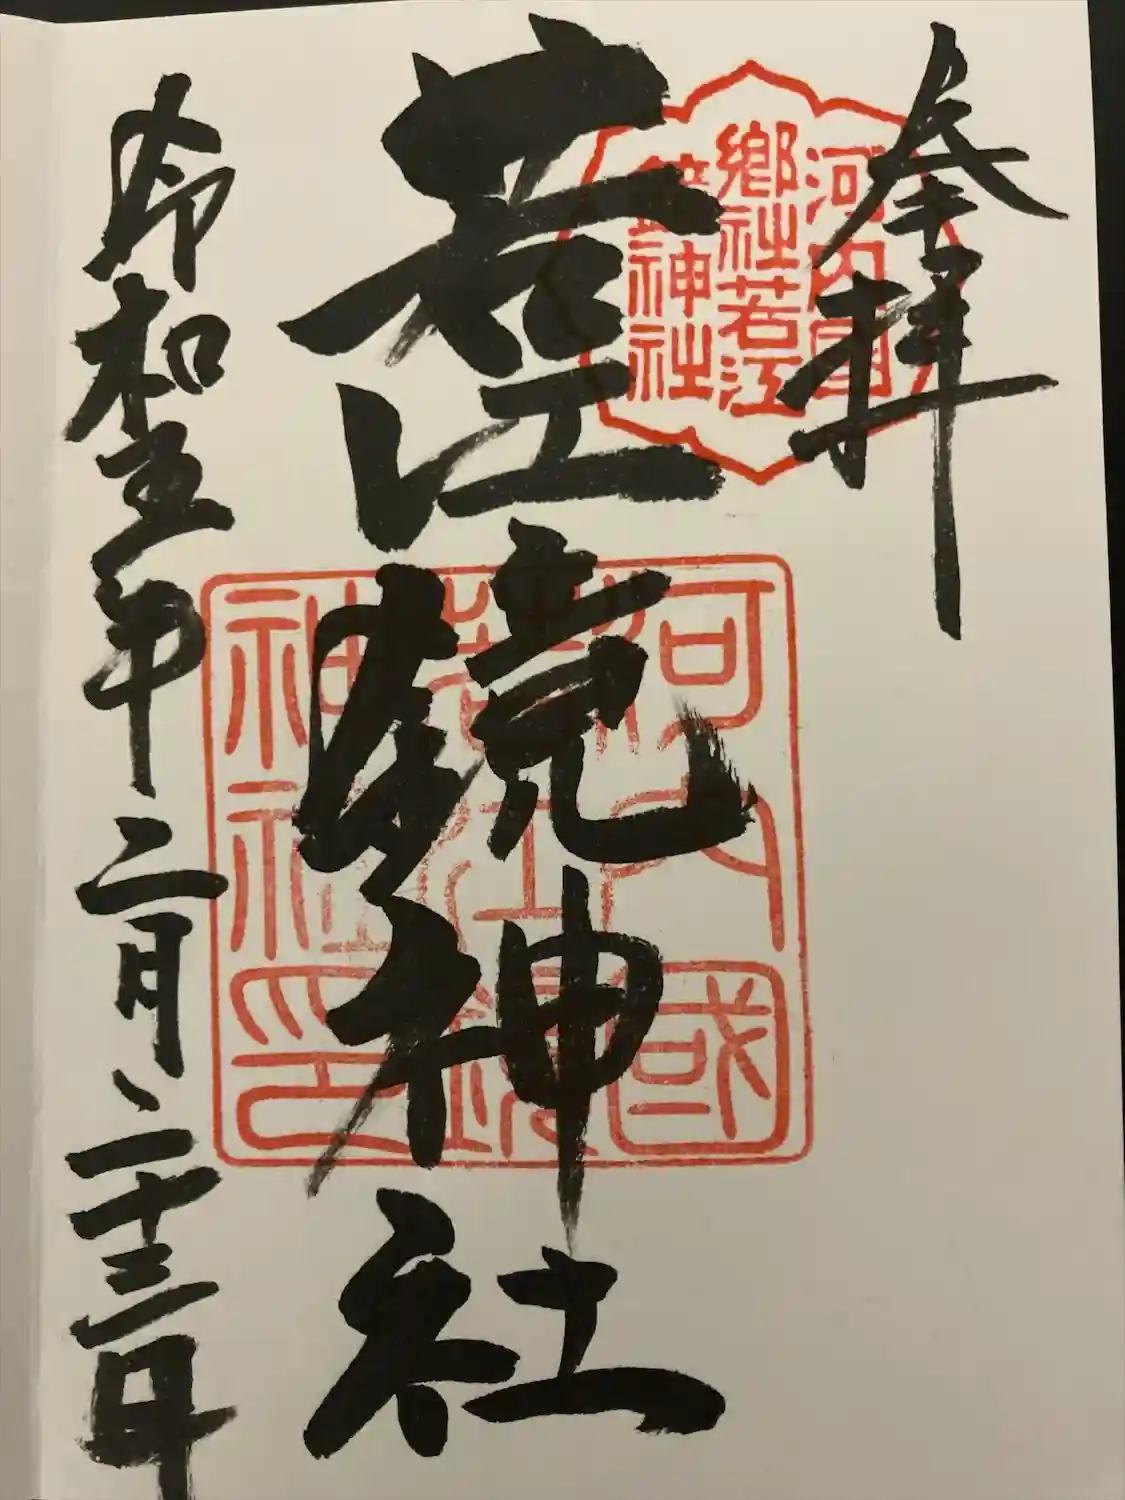 奉拝
河内國
郷社若江
鏡神社
若江鏡神社
河内國
若江鏡
神社印
令和五年二月、二十三日